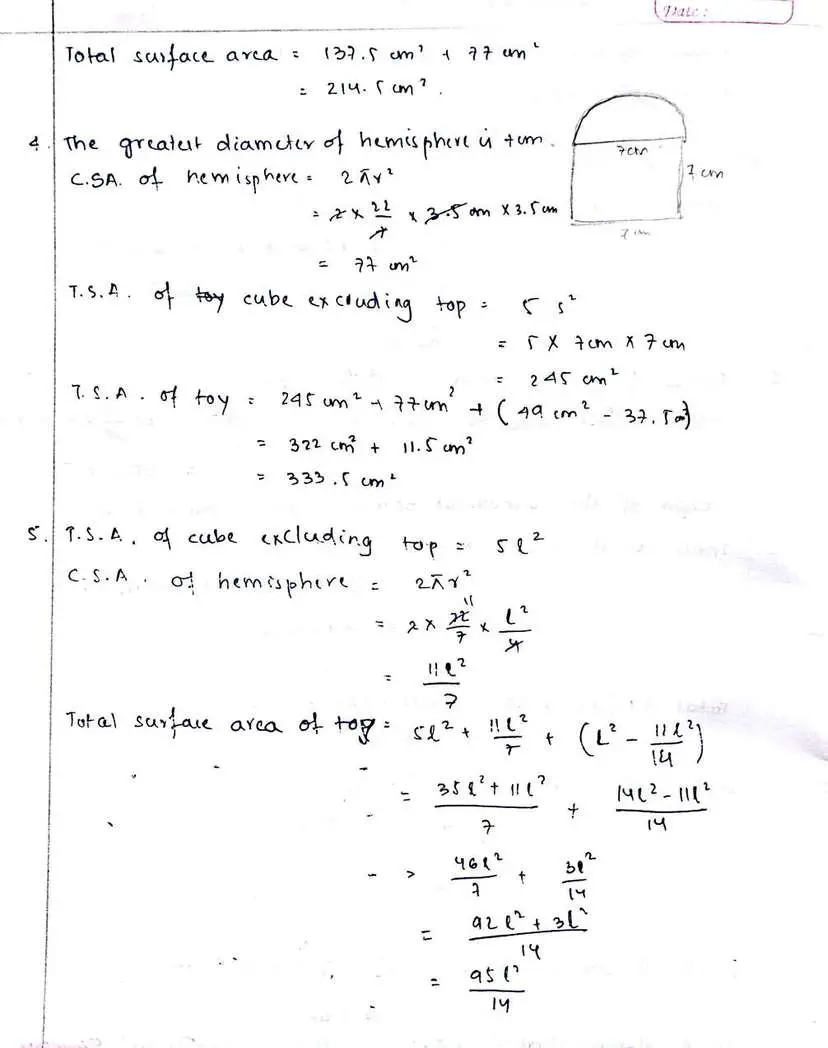 Date :
Total surface area = 137.5 cm² + 77 cm²
= 214.5 cm².
4. The greatest diameter of hemisphere is 7cm.
C.SA. of hemisphere = 2πr²
= 2 × 22/7 × 3.5 cm × 3.5 cm
= 77 cm²
7cm
7 cm
7 cm
T.S.A. of toy cube excluding top = 5 s²
= 5 × 7cm × 7cm
= 245 cm²
T.S.A. of toy = 245 cm² + 77cm² + (49 cm² - 37.5cm²)
= 322 cm² + 11.5 cm²
= 333.5 cm²
5. T.S.A. of cube excluding top = 5l²
C.S.A. of hemisphere = 2πr²
= 2 × 22/7 11 × l²/4
= 11l²/7
Total surface area of toy = 5l² + 11l²/7 + (l² - 11l²/14)
= 35l² + 11l²/7 + 14l² - 11l²/14
= 46l²/7 + 3l²/14
= 92l² + 3l²/14
= 95l²/14